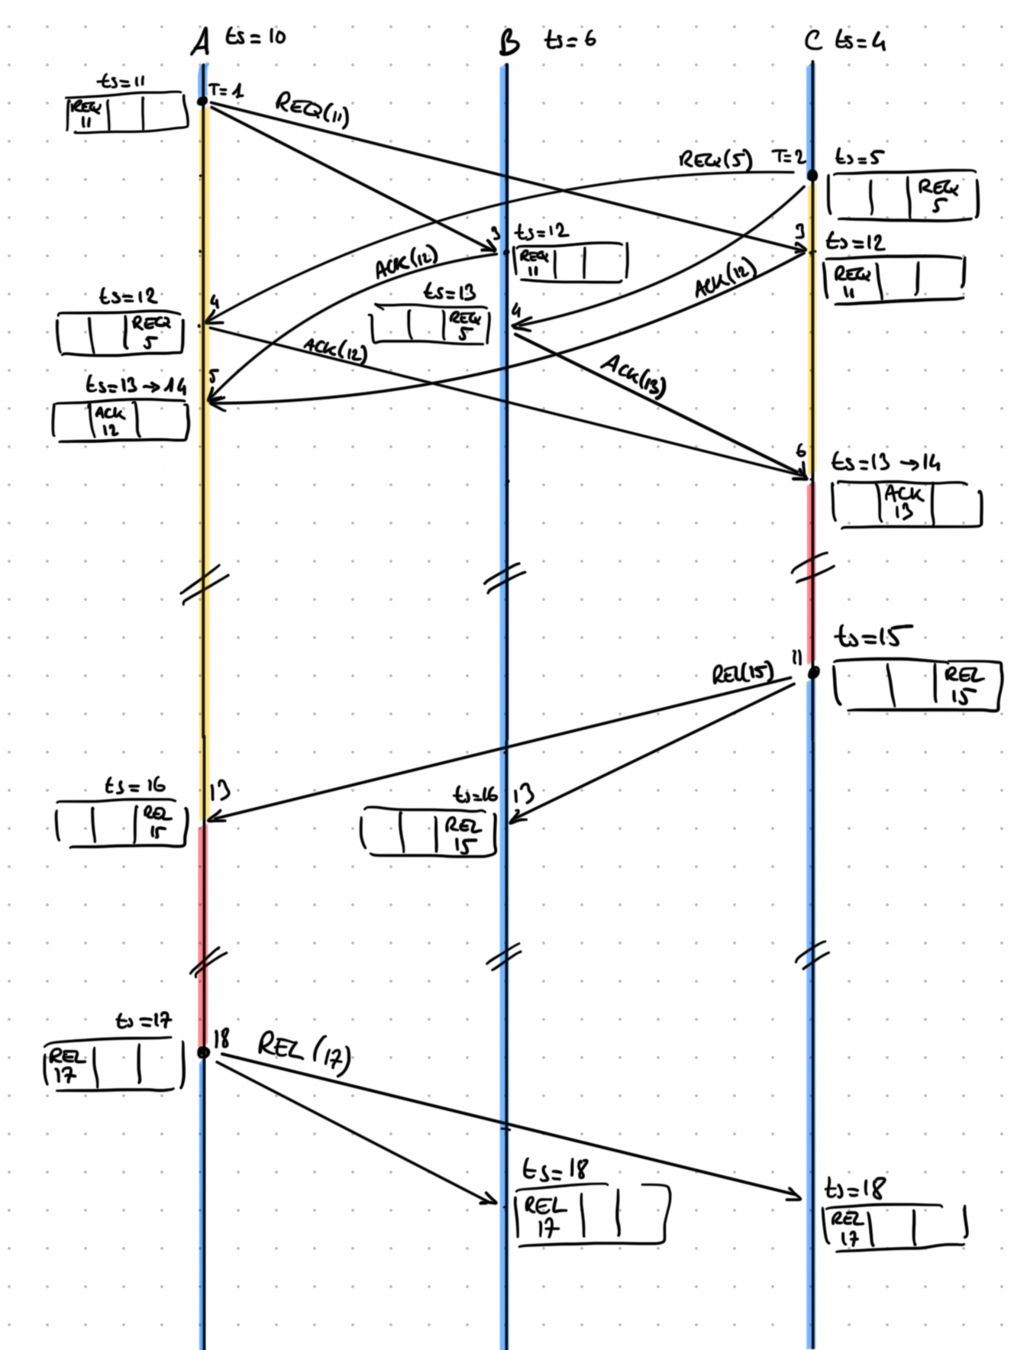 A ts=10
B ts=6
C ts=4
ts=11
T=1
REQ
11
REQ(11)
REQ(5)
T=2
ts=5
REQ
5
3
ts=12
REQ
11
3
ts=12
REQ
11
ACK(12)
ACK(12)
ts=12
4
REQ
5
ts=13
4
REQ
5
ACK(12)
ACK(13)
ts=13→14
5
ACK
12
6
ts=13→14
ACK
13
REL(15)
11
ts=15
REL
15
ts=16
13
REL
15
ts=16
13
REL
15
ts=17
18
REL
17
REL (17)
ts=18
REL
17
ts=18
REL
17